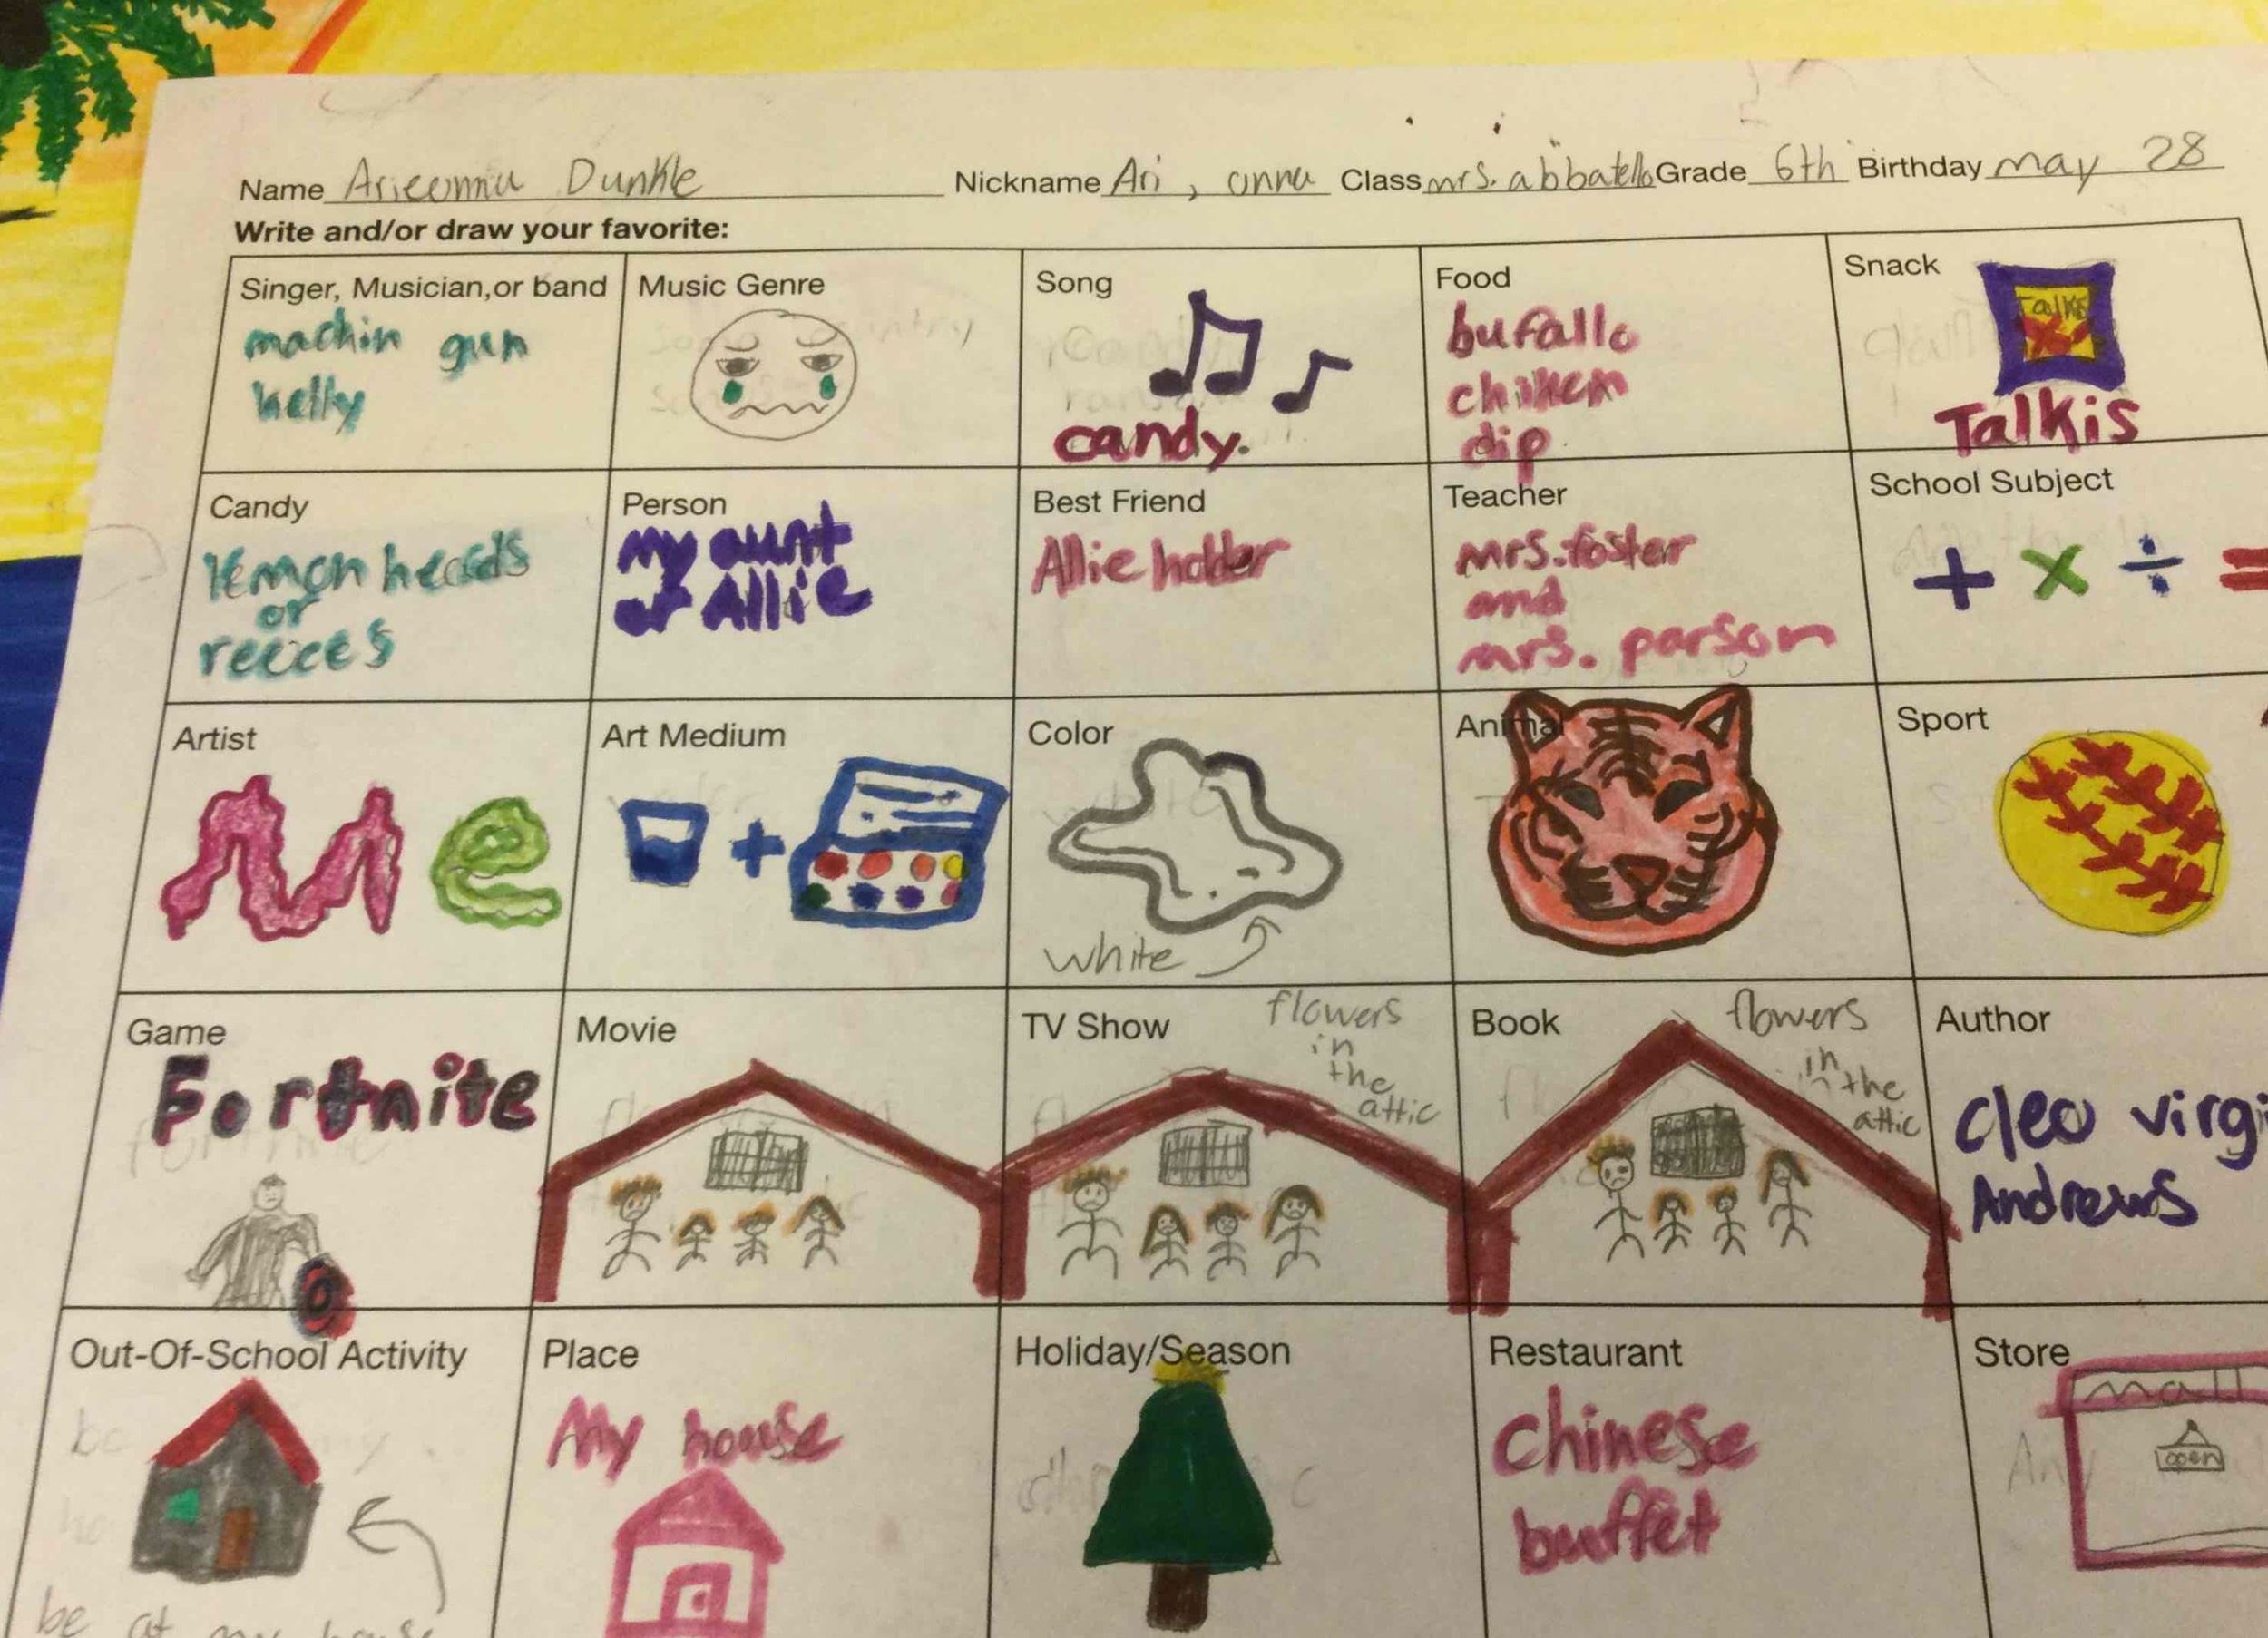 Name Arieonna Dunkle Nickname Ari, anna Class mrs. abbatello Grade 6th Birthday may 28
Write and/or draw your favorite:
Singer, Musician,or band
machin gun
kelly
Music Genre
Song
candy.
Food
bufallo
chiken
dip
Snack
Talkis
Talkis
Candy
lemon heads
or
reeces
Person
My aunt
or Allie
Best Friend
Allie holder
Teacher
mrs. foster
and
mrs. parson
School Subject
+ x ÷ =
Artist
Me
Art Medium
+
Color
white
Animal
Sport
Game
Fortnite
Movie
TV Show
flowers
in
the
attic
Book
flowers
in the
attic
Author
cleo virgi
Andrews
Out-Of-School Activity
be at my house
Place
My house
Holiday/Season
Restaurant
chinese
buffet
Store
mall
open